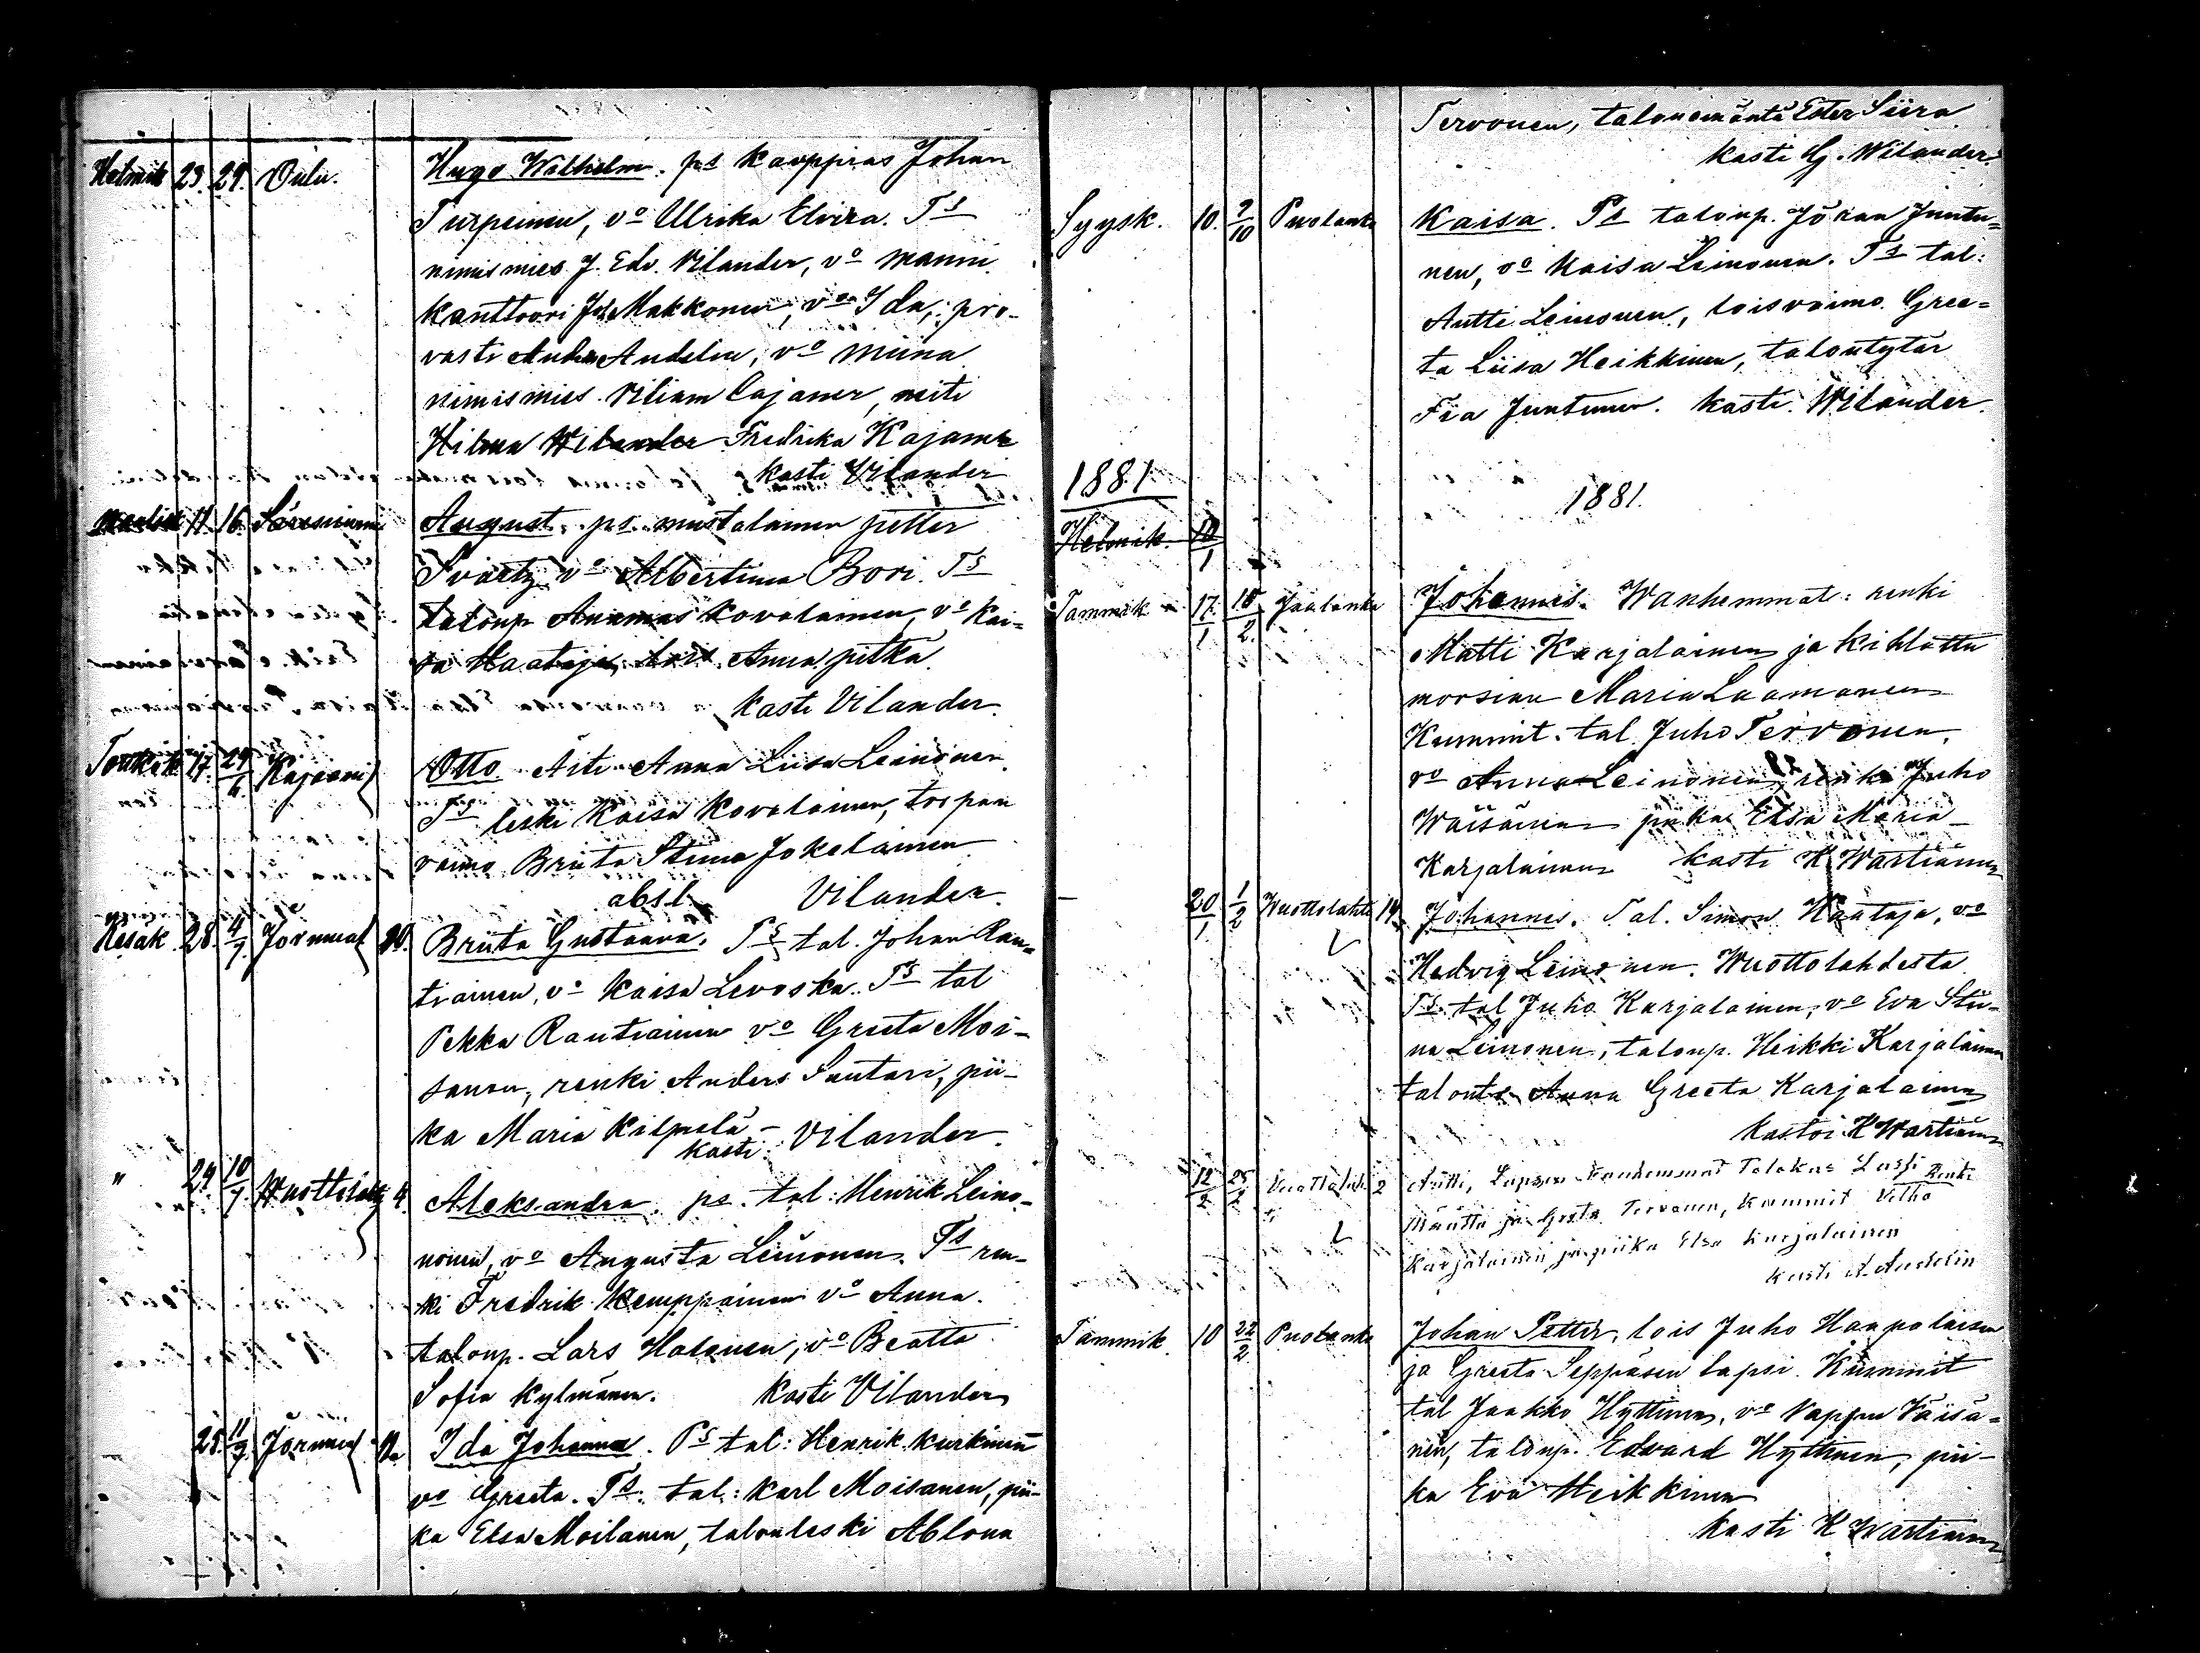 Helmik 23. 29. Oulu. Hugo Wilhelm. ps kauppias Johan
Turpeinen, vo Ulrika Elvira. Ts
nimismies J. Edv. Vilander, vo
kanttoori Joh Makkonen, vo Ida, pro-
vasti Andelin, vo Miina
nimismies Viliam Cajaner, neiti
Hilma Wilander Fredrika Kajaner
kasti Vilander
11. 16. Säresniemi August. ps. mustalainen petter
Svartz vo Albertina Bori. Ts
taloup Kovalainen, vo Kai-
sa Haataja, Anna pitkä.
kasti Vilander.
17. 24/6 Kajaani Otto. Äiti Anna Liisa Leinonen.
Ts leski Kaisa Kovalainen, torpan
vaimo Briita Stiina Jokelainen
absl. Vilander.
Kesäk. 28. 4/7 Jormua 20. Briita Gustaava. Ps tal. Johan Rau-
tiainen, vo Kaisa Levoska. Ts tal
Pekka Rautiainen vo Greeta Moi-
sanen, renki Anders Santari, pii-
ka Maria Kilpelä -
kasti: Vilander.
" 29. 10/7 Wuottolahti 4. Aleksandra. ps. tal: Henrik Leino-
nonen, vo Augusta Leinonen. Ts ren-
ki Fredrik Kemppainen vo Anna.
taloup. Lars Halonen, vo Beatta
Sofia Kylmänen. kasti Vilander
25. 11/7 Jormua Ida Johanna. Ps tal: Henrik Kurkinen
vo Greeta. Ts. tal: Karl Moisanen, pii-
ka Elsa Moilanen, talonleski Ablona
Tervonen, talonemäntä Ester Siira
kasti G. Wilander.
Syysk. 10. 9/10 Puolanka Kaisa. Ps taloup. Jöran Juntu=
nen, vo Kaisa Leinonen. Ts tal:
Antti Leinonen, loisvaimo Gree=
ta Liisa Heikkinen, talontytär
Fia Juntunen. kasti. Wilander.
1881. 1881.
Helmik. 18/1
Tammik 17/1 18/2. Johannes. Wanhemmat: renki
Matti Karjalainen ja kihlattu
morsian Maria Laamanen
Kummit. tal. Juho Tervonen,
vo Anna Leinonen, renki Juho
Wäisänen piika Elsa Maria
Karjalainen kasti K Wartiainen
- 20/1 1/2 Wuottolahti 14. Johannes. Tal. Simon Haataja, vo
Hedvig Leinonen. Wuottolahdesta
Ts. tal Juho Karjalainen, vo Eva Stii-
na Leinonen, taloup. Heikki Karjalainen
talont. Anna Greeta Karjalainen
kastoi K Wartiainen
12/2 25/2 Vuottolah 2 Antti, Lapsen Vanhemmat Talokas Lassi
ti Määttä ja Greta Tervonen, kummit Renki Vilho
Karjalainen ja piika Elsa Karjalainen
kasti A. Andelin
Tammik. 10 22/2 Puolanka Johan Petter, lois Juho Haapalaisen
ja Greeta Seppäsen lapsi. Kummit
tal Jaakko Hyttinen, vo Vappu Väisä=
nen, taloup. Edvard Hyttinen, pii-
ka Eva Heikkinen
kasti K Wartiainen